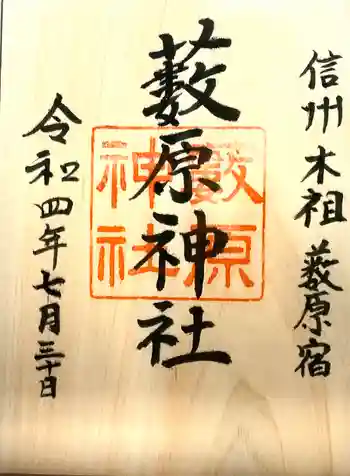 信州木祖薮原宿
薮原神社
薮原
神社
令和四年七月三十日